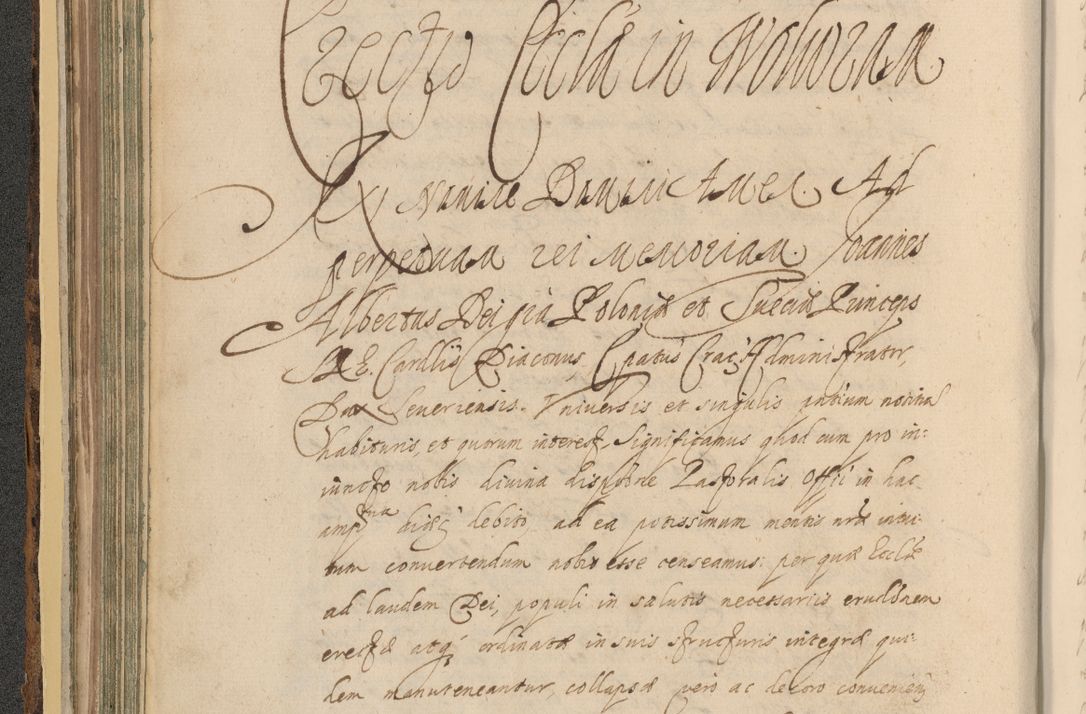 Erectio Ecclae in Wolworam
In Nomine Domini Amen. Ad
perpetuam rei memoriam. Joannes
Albertus Dei gra Poloniæ et Sueciæ Princeps
S. R. E. Cardlis Diaconus, Epatus Crac. Administrator,
Dux Severiensis. Universis et singulis pntium notitia
habituris, et quorum interest, significamus quod cum pro in:
iuncto nobis divina dispone Pastoralis Officii in hac
ampsma diæc. debito, ad ea potissimum mentis nræ intui:
tum convertendum nobis esse censeamus: per quæ Ecclæ
ad laudem Dei, populi in salutis necessariis erudonem
erectæ atq. ordinatæ in suis structuris integræ qui:
dem manuteneantur, collapsæ vero ac decoro convenienti